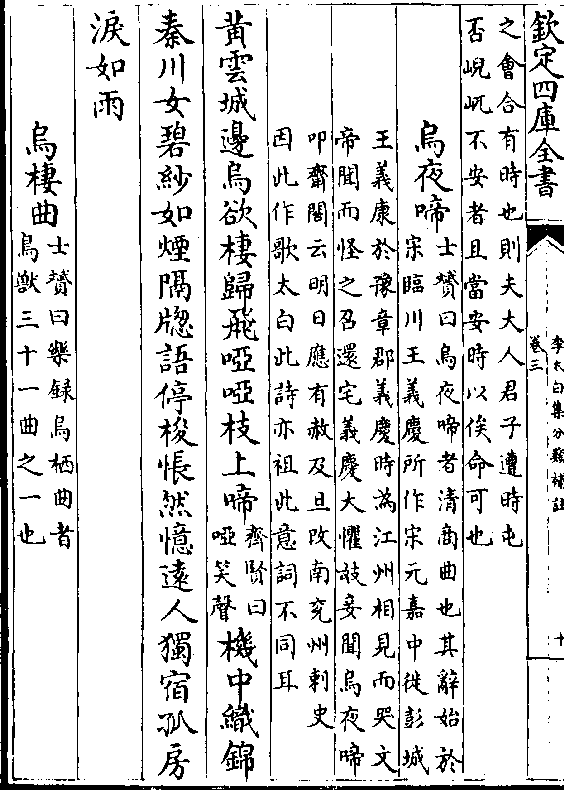 欽定四庫全書
李太白集分類補註
卷三
十
之會合有時也則夫大人君子遭時屯
否峴屼不安者且當安時以俟命可也
烏夜啼
士贇曰烏夜啼者清商曲也其辭始於
宋臨川王義慶所作宋元嘉中徙彭城
王義康於豫章郡義慶時為江州相見而哭文
帝聞而怪之召還宅義慶大懼妓妾聞烏夜啼
叩齋閤云明日應有赦及旦改南兖州刺史
因此作歌太白此詩亦祖此意詞不同耳
黃雲城邊烏欲棲歸飛啞啞枝上啼
齊賢曰
啞笑聲
機中織錦
秦川女碧紗如煙隔牎語停梭悵然憶遠人獨宿孤房
淚如雨
烏棲曲
士贇曰樂録烏栖曲者
鳥獸三十一曲之一也